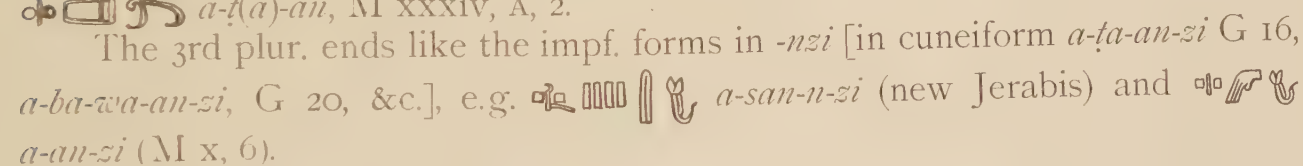 a-ṭ(a)-an, M XXXIV, A, 2.
The 3rd plur. ends like the impf. forms in -nzi [in cuneiform a-ṭa-an-zi G 16,
a-ba-wa-an-zi, G 20, &c.], e.g. a-san-n-zi (new Jerabis) and
a-an-zi (M x, 6).